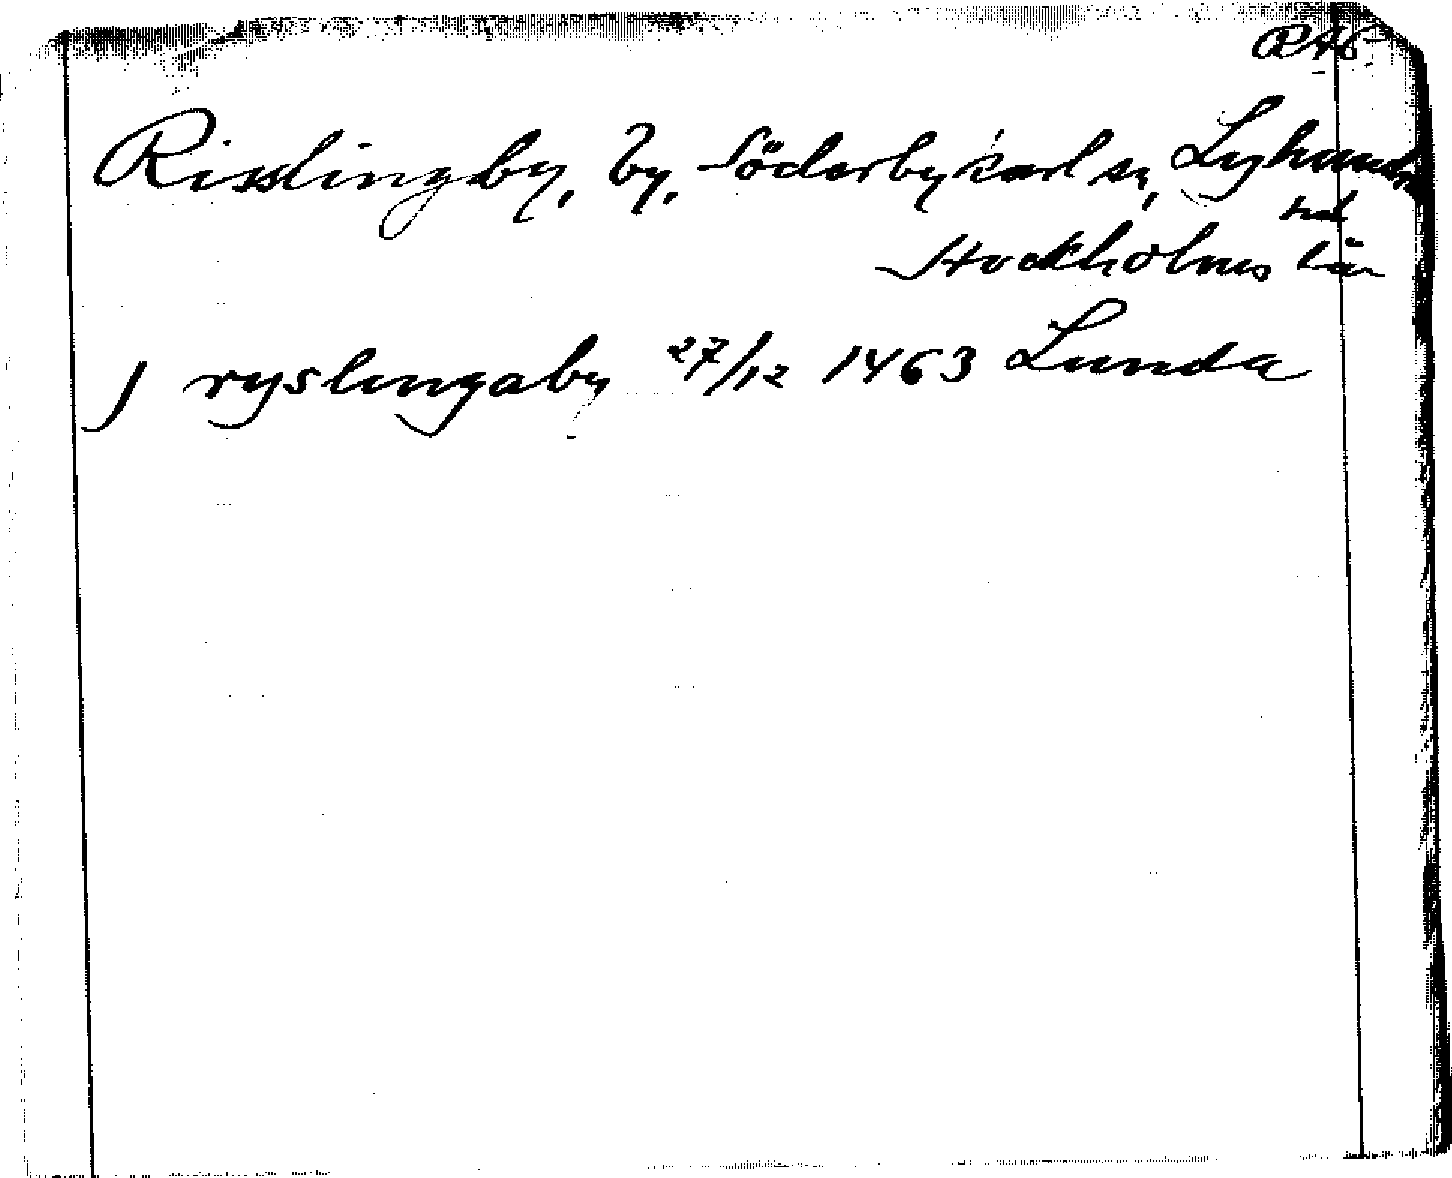 RAÖ
Risslingby, by, Söderbykarl sn, Lyhundra
hd
Stockholms län
J ryslingaby 27/12 1463 Lunda